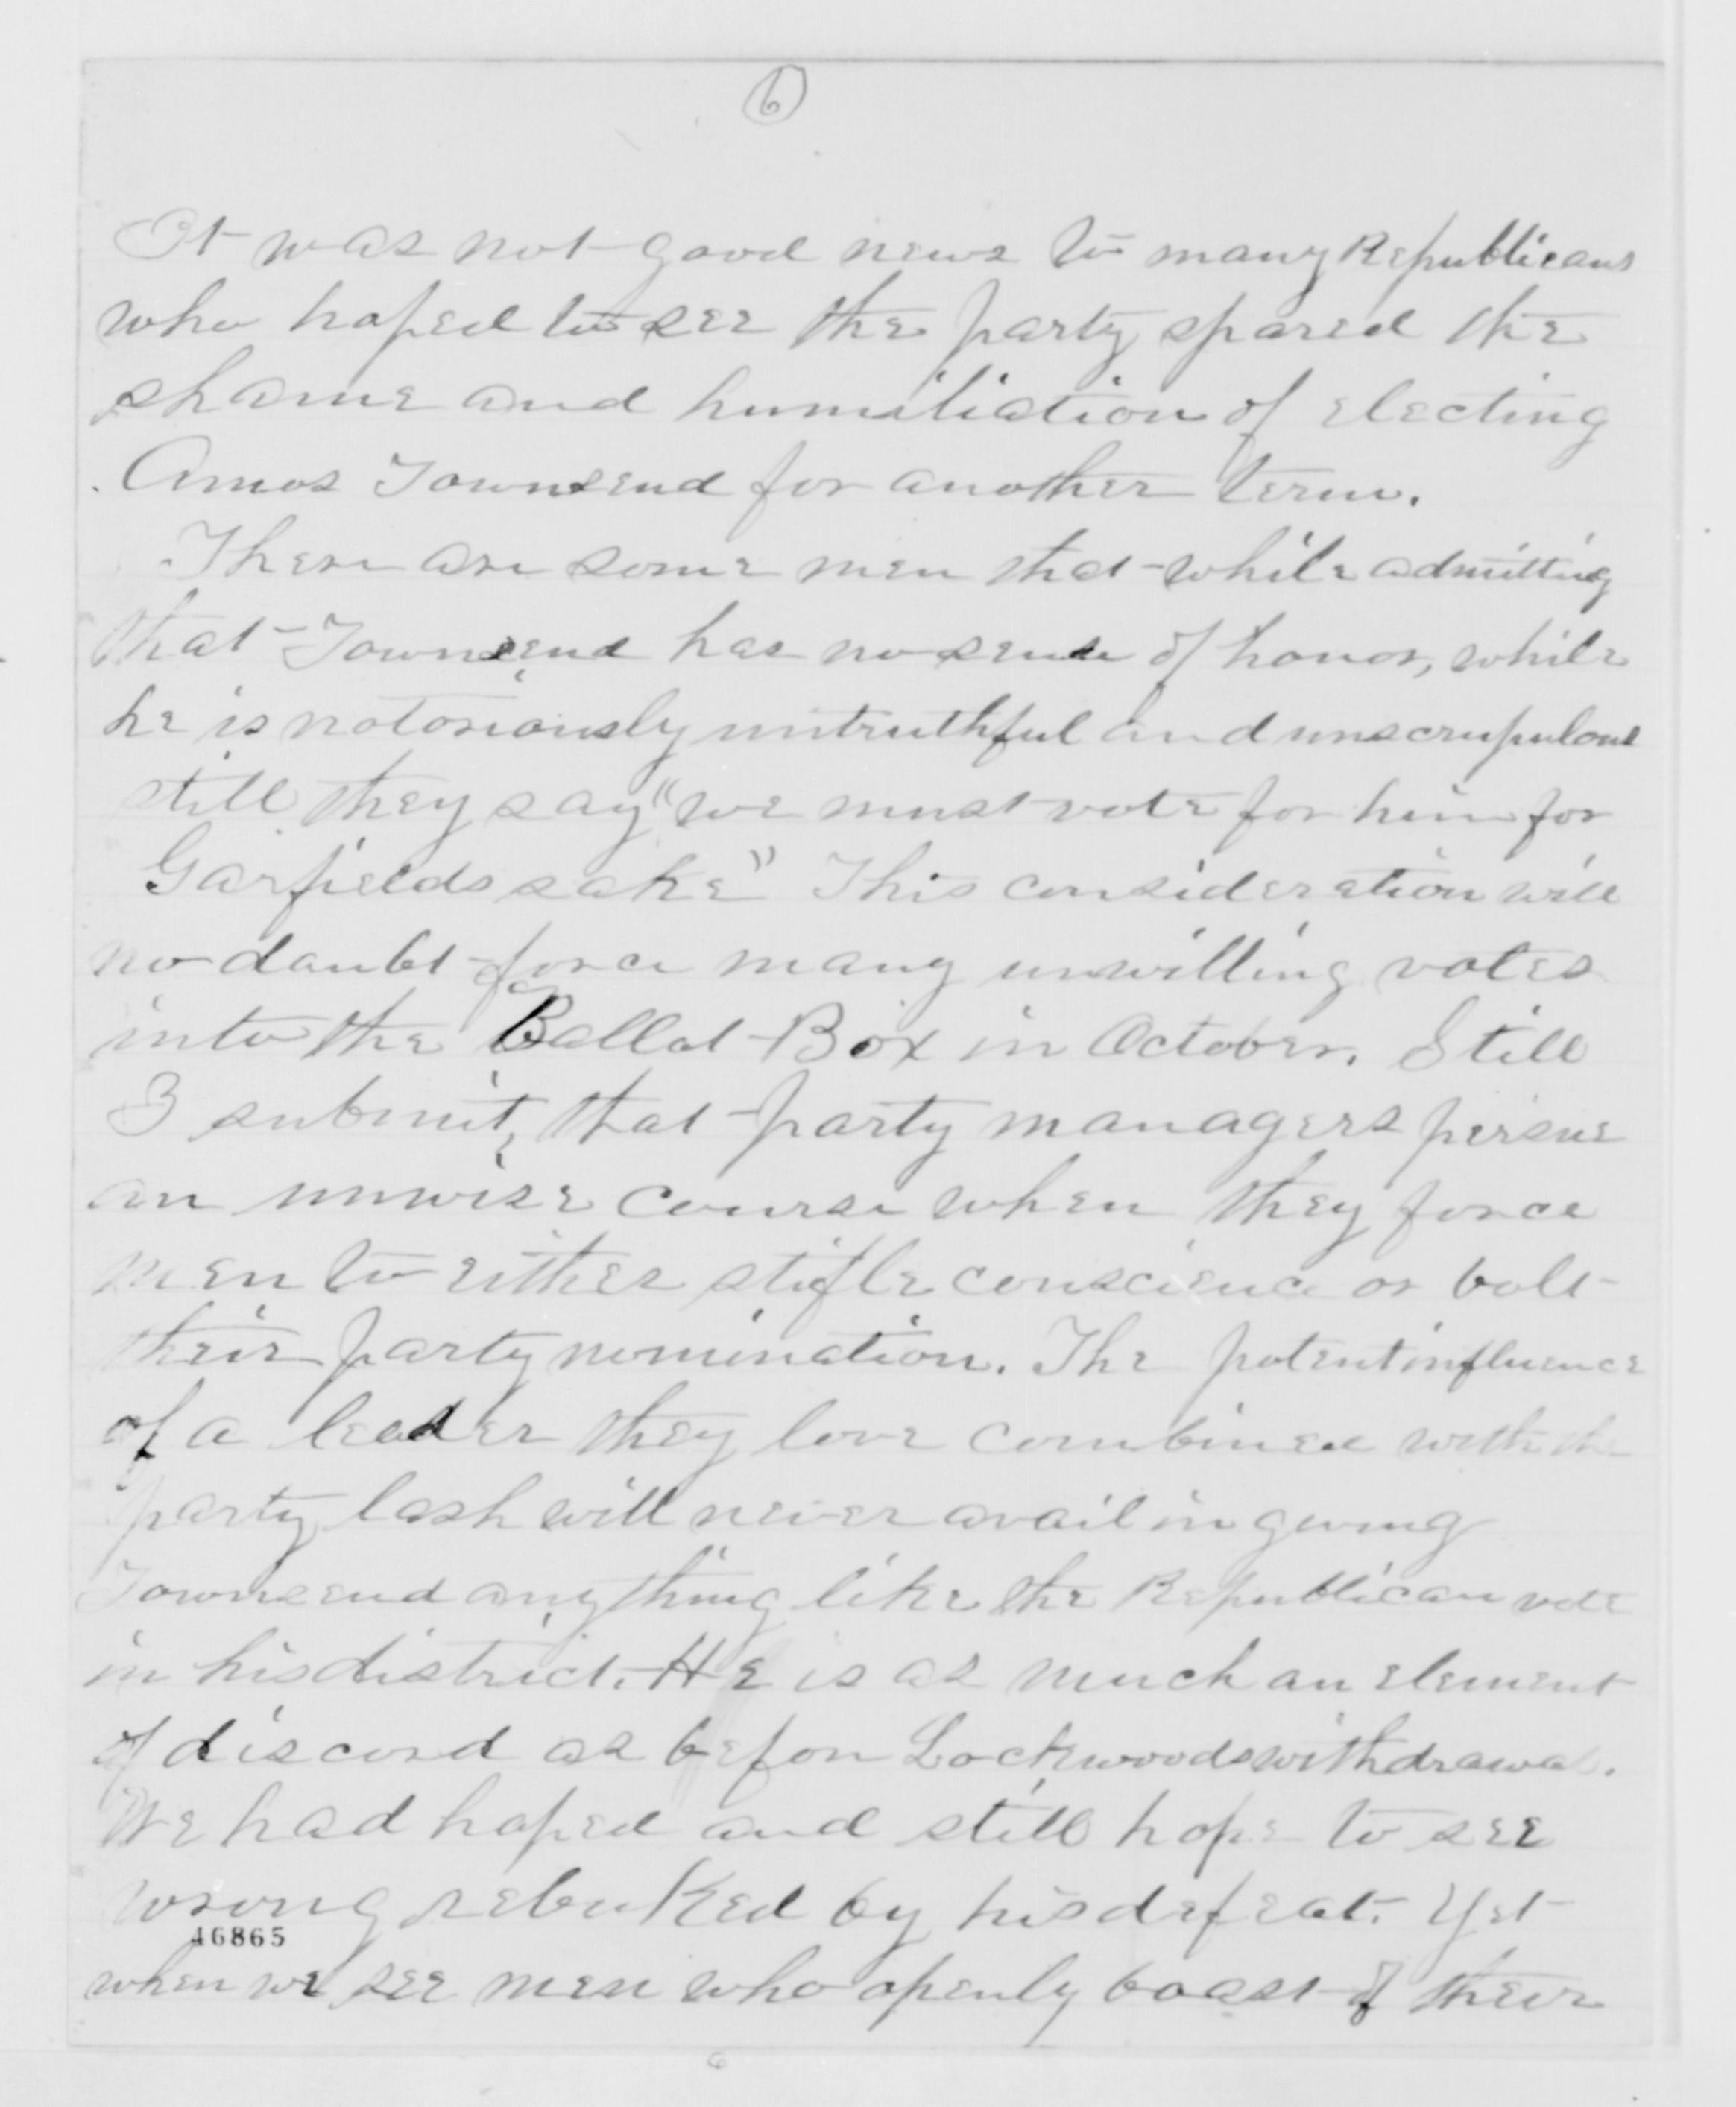 6
It was not good news to many Republicans
who hoped to see the party spared the
shame and humiliation of electing
Amos Townsend for another term.
There are some men that while admitting
that Townsend has no sense of honor, while
he is notoriously untruthful and unscrupulous
still they say "we must vote for him for
Garfields sake" This consideration will
no doubt force many unwilling votes
into the Ballot Box in October. Still
I submit, that party managers persue
an unwise course when they force
men to either stifle conscience or bolt
their party nomination. The potent influence
of a leader they love combined with the
party lash will never avail in giving
Townsend anything like the Republican vote
in his district. He is as much an element
of discord as before Lockwoods withdrawal.
We had hoped and still hope to see
wrong rebuked by his defeat. Yet
46865
when we see men who openly boast of their
6